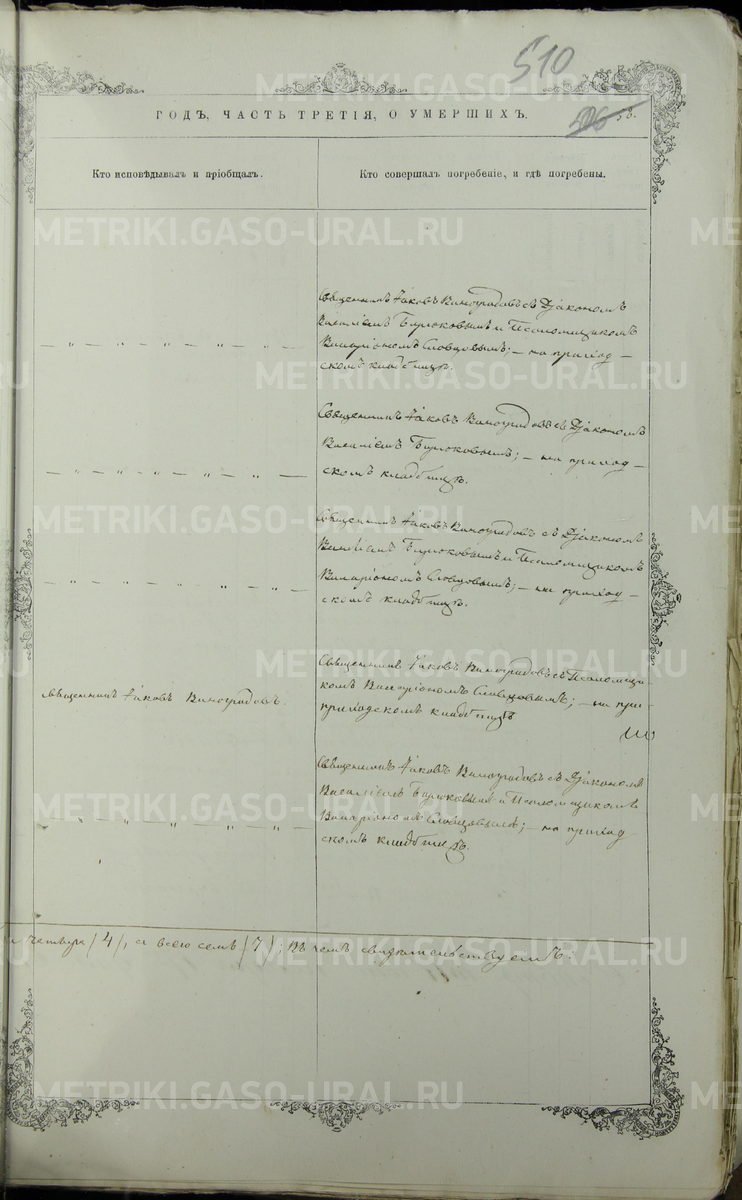 510
ГОДЪ, ЧАСТЬ ТРЕТІЯ, О УМЕРШИХЪ.
58.
Кто исповѣдывалъ и пріобщалъ.
Кто совершалъ погребеніе, и гдѣ погребены.
Священникъ Іаковъ Виноградовъ съ Діакономъ
Василіемъ Бирюковымъ и Псаломщикомъ
Иларіономъ Словцовымъ; – на приход-
скомъ кладбищѣ.
— „ — „ — „ — „ —
Священникъ Іаковъ Виноградовъ съ Діакономъ
Василіемъ Бирюковымъ; – на приход-
скомъ кладбищѣ.
— „ — „ — „ — „ —
Священникъ Іаковъ Виноградовъ съ Діакономъ
Василіемъ Бирюковымъ и Псаломщикомъ
Иларіономъ Словцовымъ; – на приход-
скомъ кладбищѣ.
— „ — „ — „ — „ —
Священникъ Іаковъ Виноградовъ.
Священникъ Іаковъ Виноградовъ съ Псаломщи-
комъ Иларіономъ Словцовымъ; – на при-
приходскомъ кладбищѣ
Священникъ Іаковъ Виноградовъ съ Діакономъ
Василіемъ Бирюковымъ и Псаломщикомъ
Иларіономъ Словцовымъ; – на приход-
скомъ кладбищѣ.
— „ — „ — „ — „ —
четыре (4), а всего семь (7); Въ чемъ свидѣтельствуемъ:
METRIKI.GASO-URAL.RU